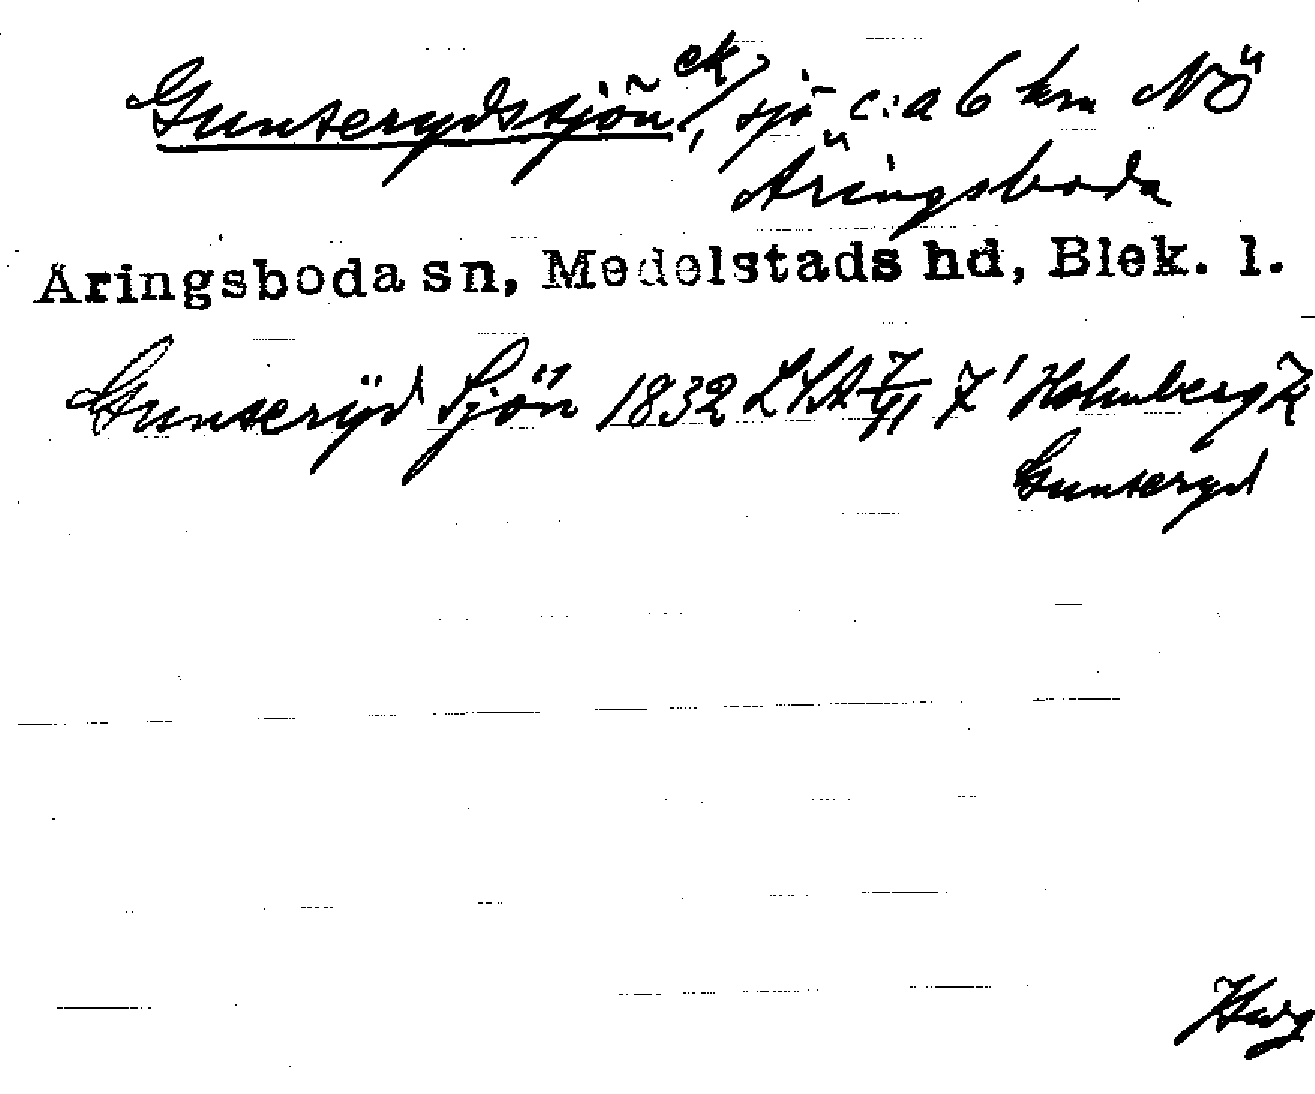 Gunserydsjön, sjö c:a 6 km NÖ
Äringsboda
Äringsboda sn, Medelstads hd, Blek. l.
Gunseryd Sjön 1832 LSA 7/VI 7' Holmberg K
Gunseryd